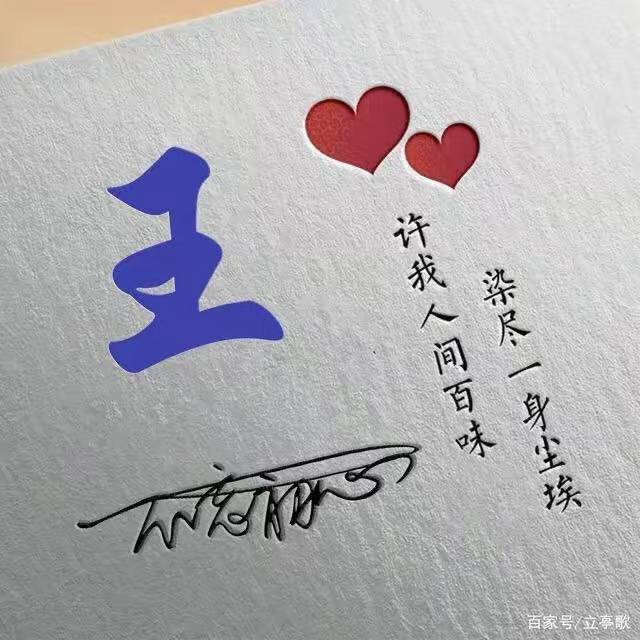 王
许我人间百味
染尽一身尘埃
百家号/立亭歌